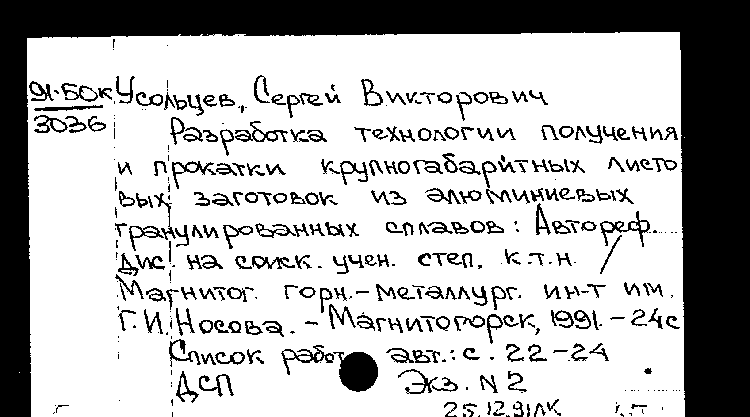 91-БОК Усольцев, Сергей Викторович
3036
Разработка технологии получения
и прокатки крупногабаритных листо
вых заготовок из алюминиевых
гранулированных сплавов: Автореф.
дис. на соиск. учен. степ. к.т.н. /
Магнитог. горн.-металлург. ин-т им.
Г.И. Носова. - Магнитогорск, 1991. - 24с
Список работ авт.: с. 22-24
ДСП Экз. N 2
25.12.91